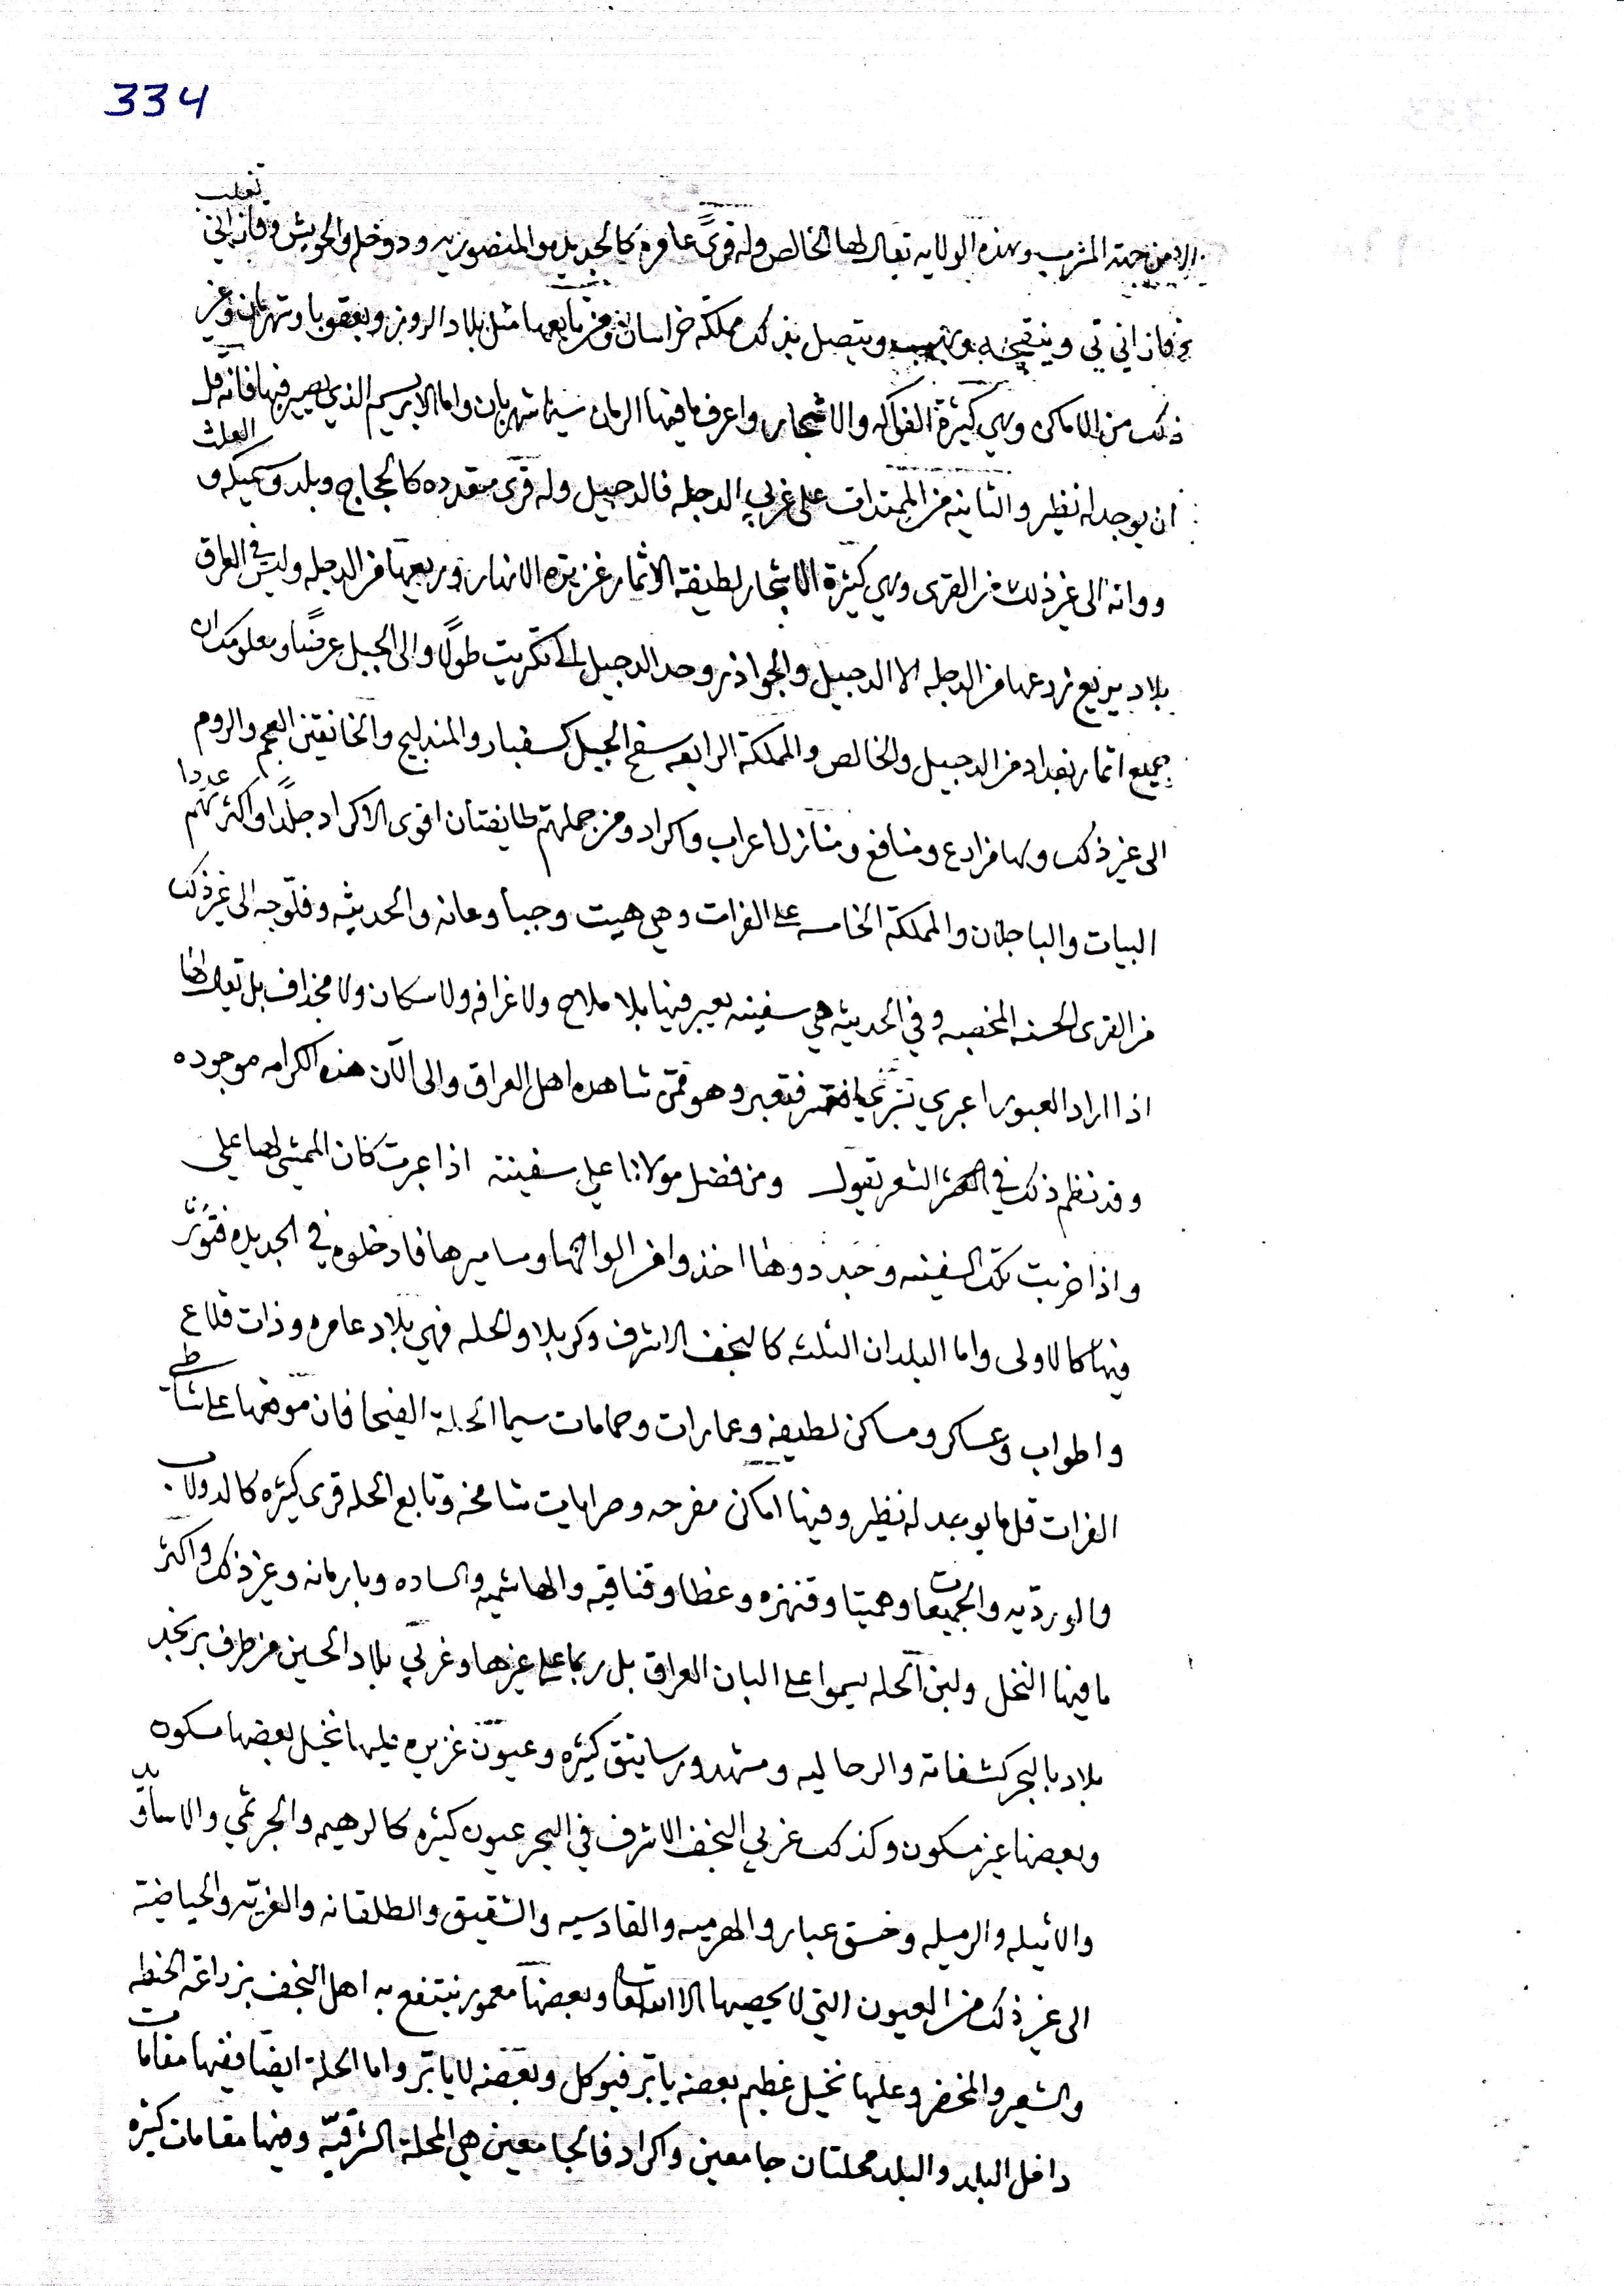 334
تغلب
من جهة المشرب وهذه الولايه تقال لها الخالص وله قرىً عامره كالجديده والمنصوريه ودوخله والحويش وقازاني
وقازاني تي وينقجه وبهرز ويتصل بذلك مملكة خراسان ومن تابعها مثل بلاد الروز وبعقوبا وشهربان وغير
ذلك من الاماكن وهي كثيرة الفواكه والاشجار واعرف ما فيها الرمان سيما شهربان واما الابريسم الذي يصير فيها فانه قل
العلث
ان يوجد له نظير والثانيه من الممتدات على غربي الدجله فالدجيل وله قرى متعدده كالحجاج وبلد وسميكه و
ووانه الى غير ذلك من القرى وهي كثيرة الاشجار لطيفة الاثمار غزيرة الانهار وريعها من الدجله وليس في العراق
بلاد يريع زرعها من الدجله الا الدجيل والجواذر وحد الدجيل الى تكريت طولاً والى الجبل عرضاً ومعلومك ان
جميع اثمار بغداد من الدجيل والخالص والمملكة الرابعه سفح الجبل كسفبار والمندليج والخانقين العجم والروم
عددا
الى غير ذلك وبها مزارع ومنافع ومنازل اعراب واكراد ومن جملتهم طايفتان اقوى الاكراد جلداً واكثرهم
البيات والباجلان والمملكة الخامسه على الفرات وهي هيت وجبا وعانه والحديثه وفلوجه الى غير ذلك
من القرى الحسنه المخصبه وفي الحديثه هي سفينه يعبر فيها بلا ملاح ولا غرافه ولا سكان ولا مجذاف بل تقال لها
اذا اراد العبور اعبري فتعبر وهو ممن شاهده اهل العراق والى الآن هذه الكرامه موجوده
وقد نظم ذلك في الشعر بقول ومن فضل مولانا علي سفينة اذا عبرت كان الممشي لها علي
واذا خربت تلك السفينه وجددوها اخذوا من الواحها ومساميرها فادخلوه في الجديده فتؤثر
فيها كالاولى واما البلدان الثلثه كالنجف الاشرف وكربلا والحله فهي بلاد عامره وذات قلاع
واطواب وعساكر ومساكن لطيفه وعمارات وحمامات سيما الحلة الفيحا فان موقعها على شاطي
الفرات قل ما يوجد له نظير وفيها اماكن مفرحه وصرايات شامخه وتابع الحله قرى كثيره كالدولاب
والورديه والجميعات وهميتا وقنهزه وعظا وقناقيه والهاشميه والساده وبارمانه وغير ذلك واكثر
ما فيها النخل ولبن الحله يسموا على البان العراق بل ربما على غيرها وغربي بلاد الحسين من طرف بر نجد
بلاد بالبحر كشفاثه والرحاليه ومشهد ورساتيق كثيره وعيون غزيره عليها نخيل بعضها مسكون
وبعضها غير مسكون وكذلك غربي النجف الاشرف في البحر عيون كثيره كالرهيمه والجرثمي والاساود
والاثيله والرميله وخسق عبار والهرميه والقادسيه والشقيق والطلقانه والغريّه والحياضية
الى غير ذلك من العيون التي لا يحصيها الا الله تعا وبعضها معمور ينتفع به اهل النجف بزراعة الحنطه
والشعير والمخضر وعليها نخيل عظيم بعضه يابر فيوكل وبعضه لا يابر واما الحلة ايضا ففيها مقامات
داخل البلد والبلد محلتان جامعين واكراد فالجامعين هي المحلة الشرقيّه وفيها مقامات كثيره